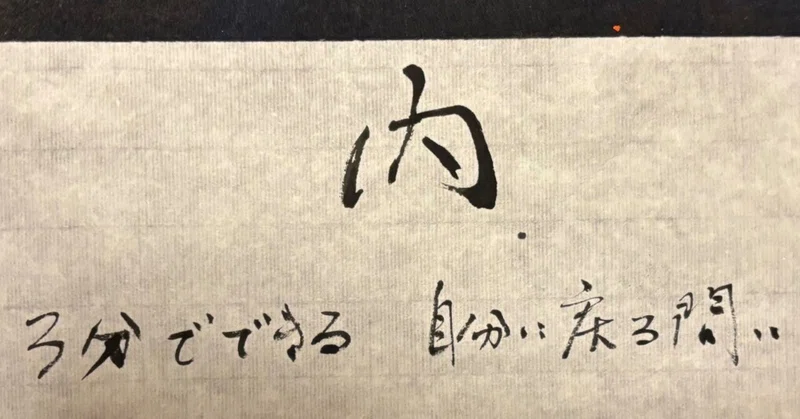 内
3分でできる 自分に戻る問い